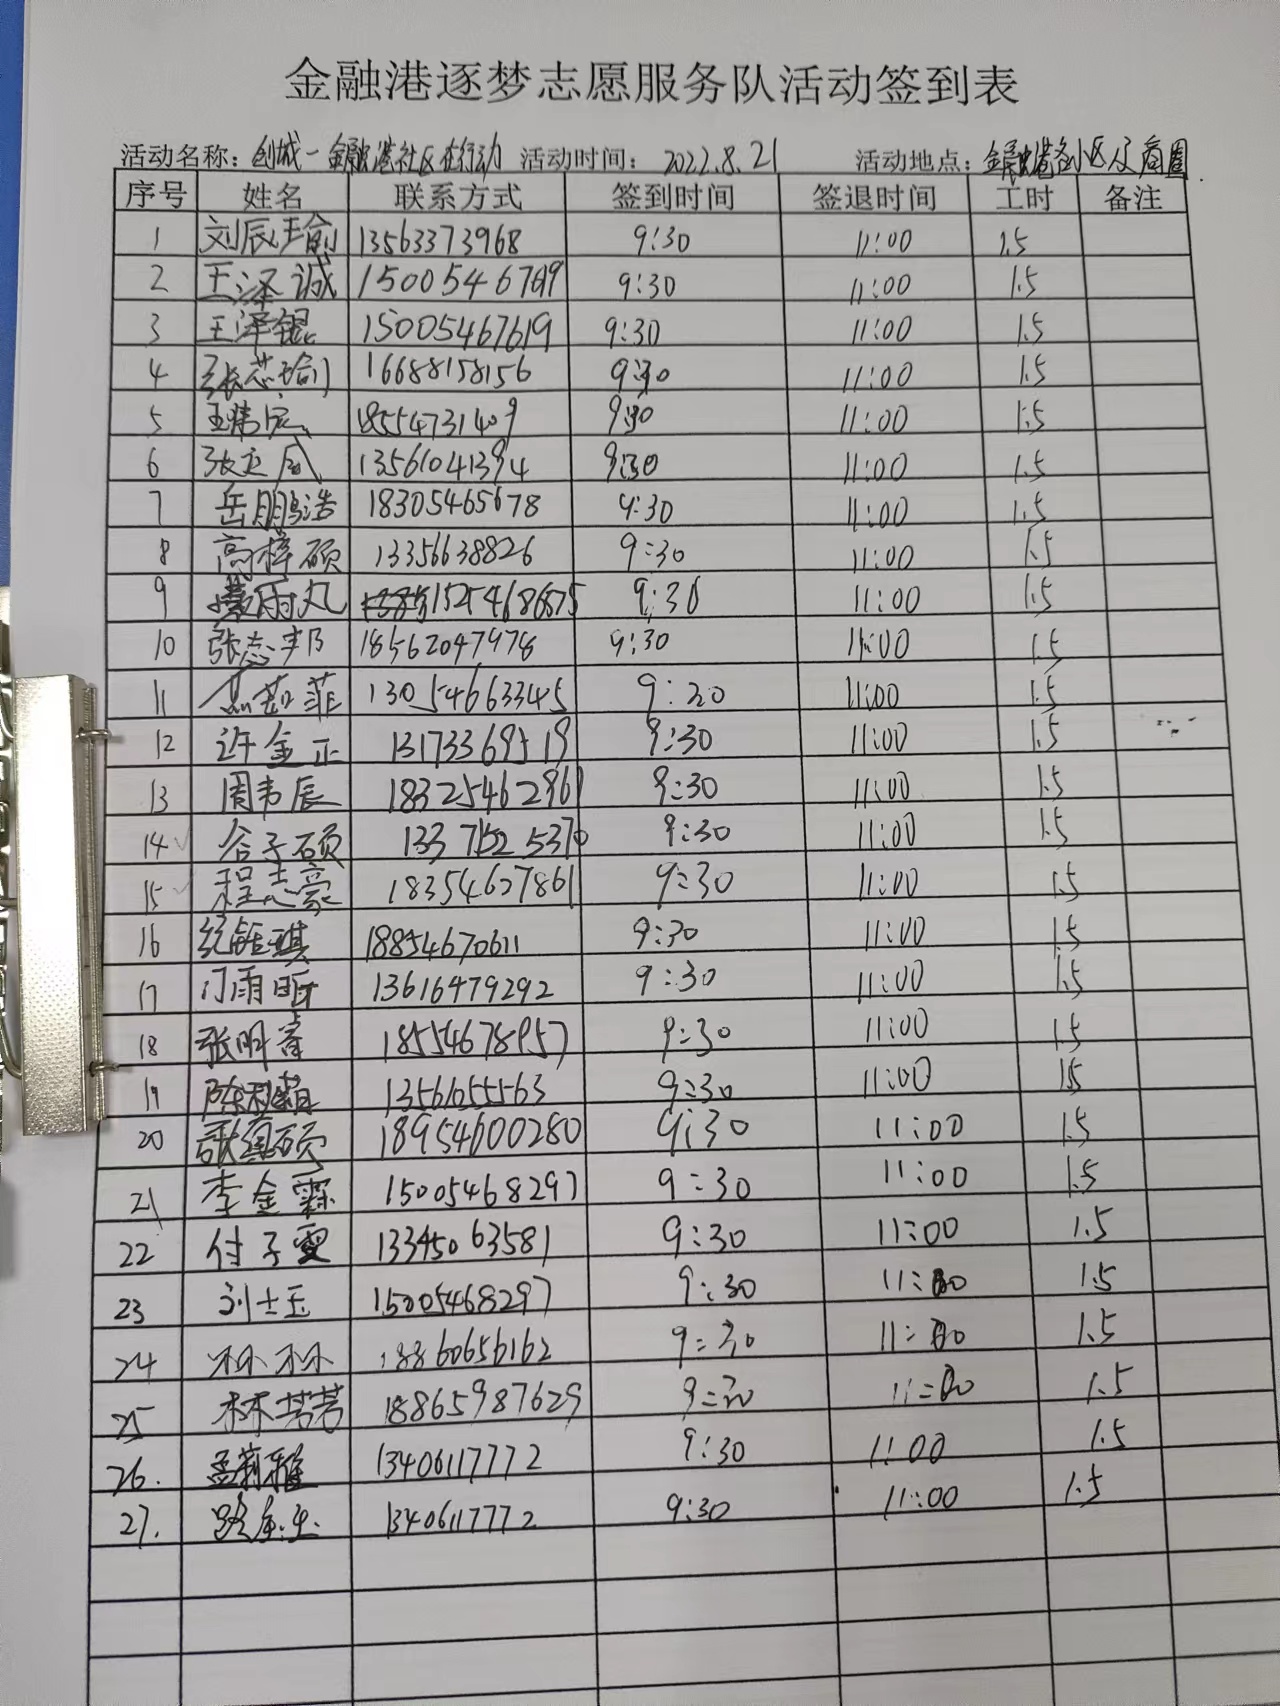 金融港逐梦志愿服务队活动签到表
活动名称：创城一金融港社区在行动 活动时间：2022.8.21 活动地点：金融港各小区及商圈
序号 姓名 联系方式 签到时间 签退时间 工时 备注
1 刘辰瑜 13563373968 9:30 11:00 1.5
2 王泽诚 9:30 11:00 1.5
3 王泽锟 15005467619 9:30 11:00 1.5
4 张芯瑜 16688158156 9:30 11:00 1.5
5 18554731409 9:30 11:00 1.5
6 张立威 13561041394 9:30 11:00 1.5
7 岳朋浩 18305465678 9:30 11:00 1.5
8 高梓硕 13356638826 9:30 11:00 1.5
9 9:30 11:00 1.5
10 张志邦 18562047978 9:30 11:00 1.5
11 13054663345 9:30 11:00 1.5
12 许金正 13173369519 9:30 11:00 1.5
13 周韦辰 18325462961 9:30 11:00 1.5
14 谷子硕 9:30 11:00 1.5
15 程志豪 18354627861 9:30 11:00 1.5
16 18854670611 9:30 11:00 1.5
17 门雨昕 13616479292 9:30 11:00 1.5
18 18554678957 9:30 11:00 1.5
19 13561055563 9:30 11:00 1.5
20 18954600280 9:30 11:00 1.5
21 李金霖 15005468297 9:30 11:00 1.5
22 付子雯 13345063581 9:30 11:00 1.5
23 刘士玉 15005468297 9:30 11:00 1.5
24 林林 18860656162 9:30 11:00 1.5
25 林芳芳 18865987629 9:30 11:00 1.5
26. 孟莉雅 13406117772 9:30 11:00 1.5
27. 13406117772 9:30 11:00 1.5